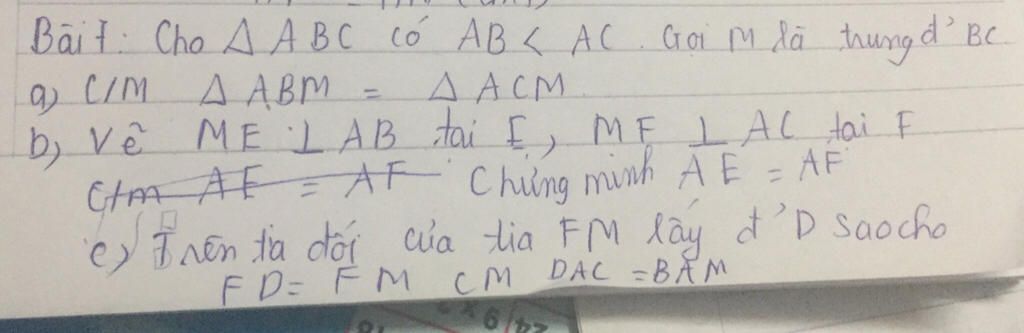 Bài 7: Cho Δ ABC có AB < AC. Gọi M là trung đ' BC
a) C/M Δ ABM = Δ ACM
b) Vẽ ME ⊥ AB tại E, MF ⊥ AC tại F
C/m AE = AF Chứng minh AE = AF
c) Trên tia đối của tia FM lấy đ' D sao cho
FD = FM CM DAC = BAM
24/9